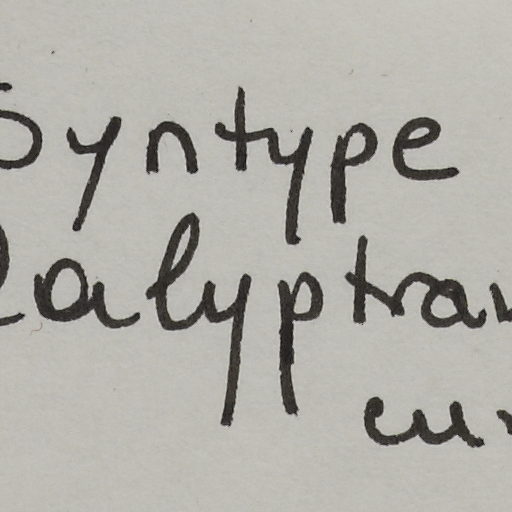 Syntype
Calyptran
cu